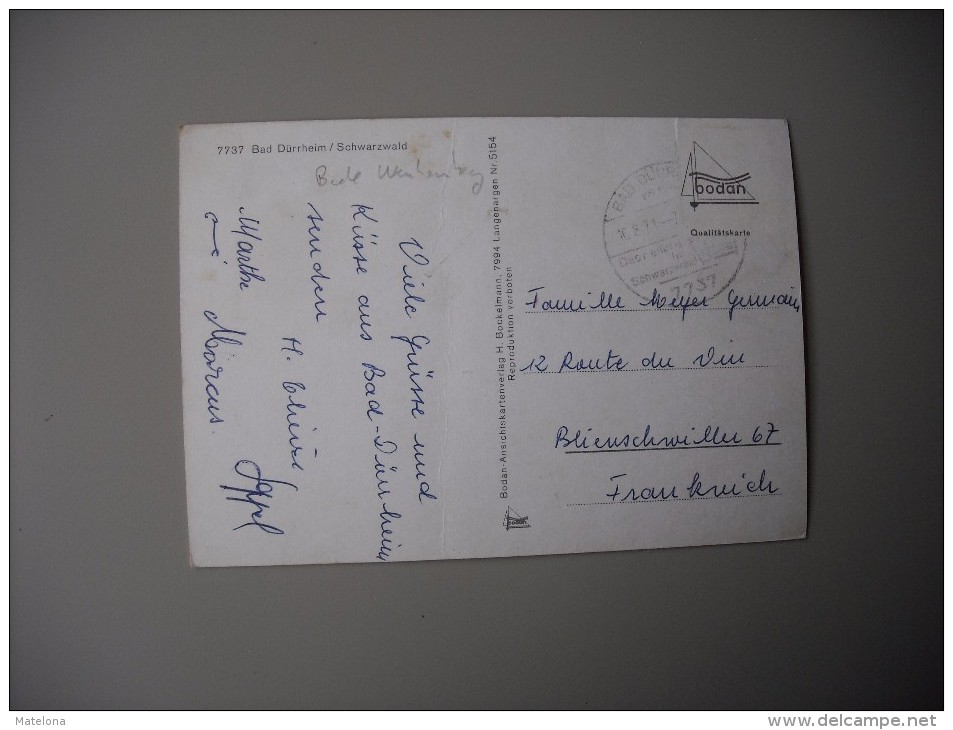 7737 Bad Dürrheim / Schwarzwald
Bade
Viele Grüsse und
Küsse aus Bad-Dürrheim
senden
H.
Appel
Marthe
Marcus.
Bodan-Ansichtskartenverlag H. Bockelmann, 7994 Langenargen Nr. 5154
Reproduktion verboten
bodan
bodan
Qualitätskarte
BAD DÜRR
Schwarzwald
7737
Famille Meyer Germain
12 Route du Vin
Blienschwiller 67
Frankreich
Matelona
www.delcampe.net